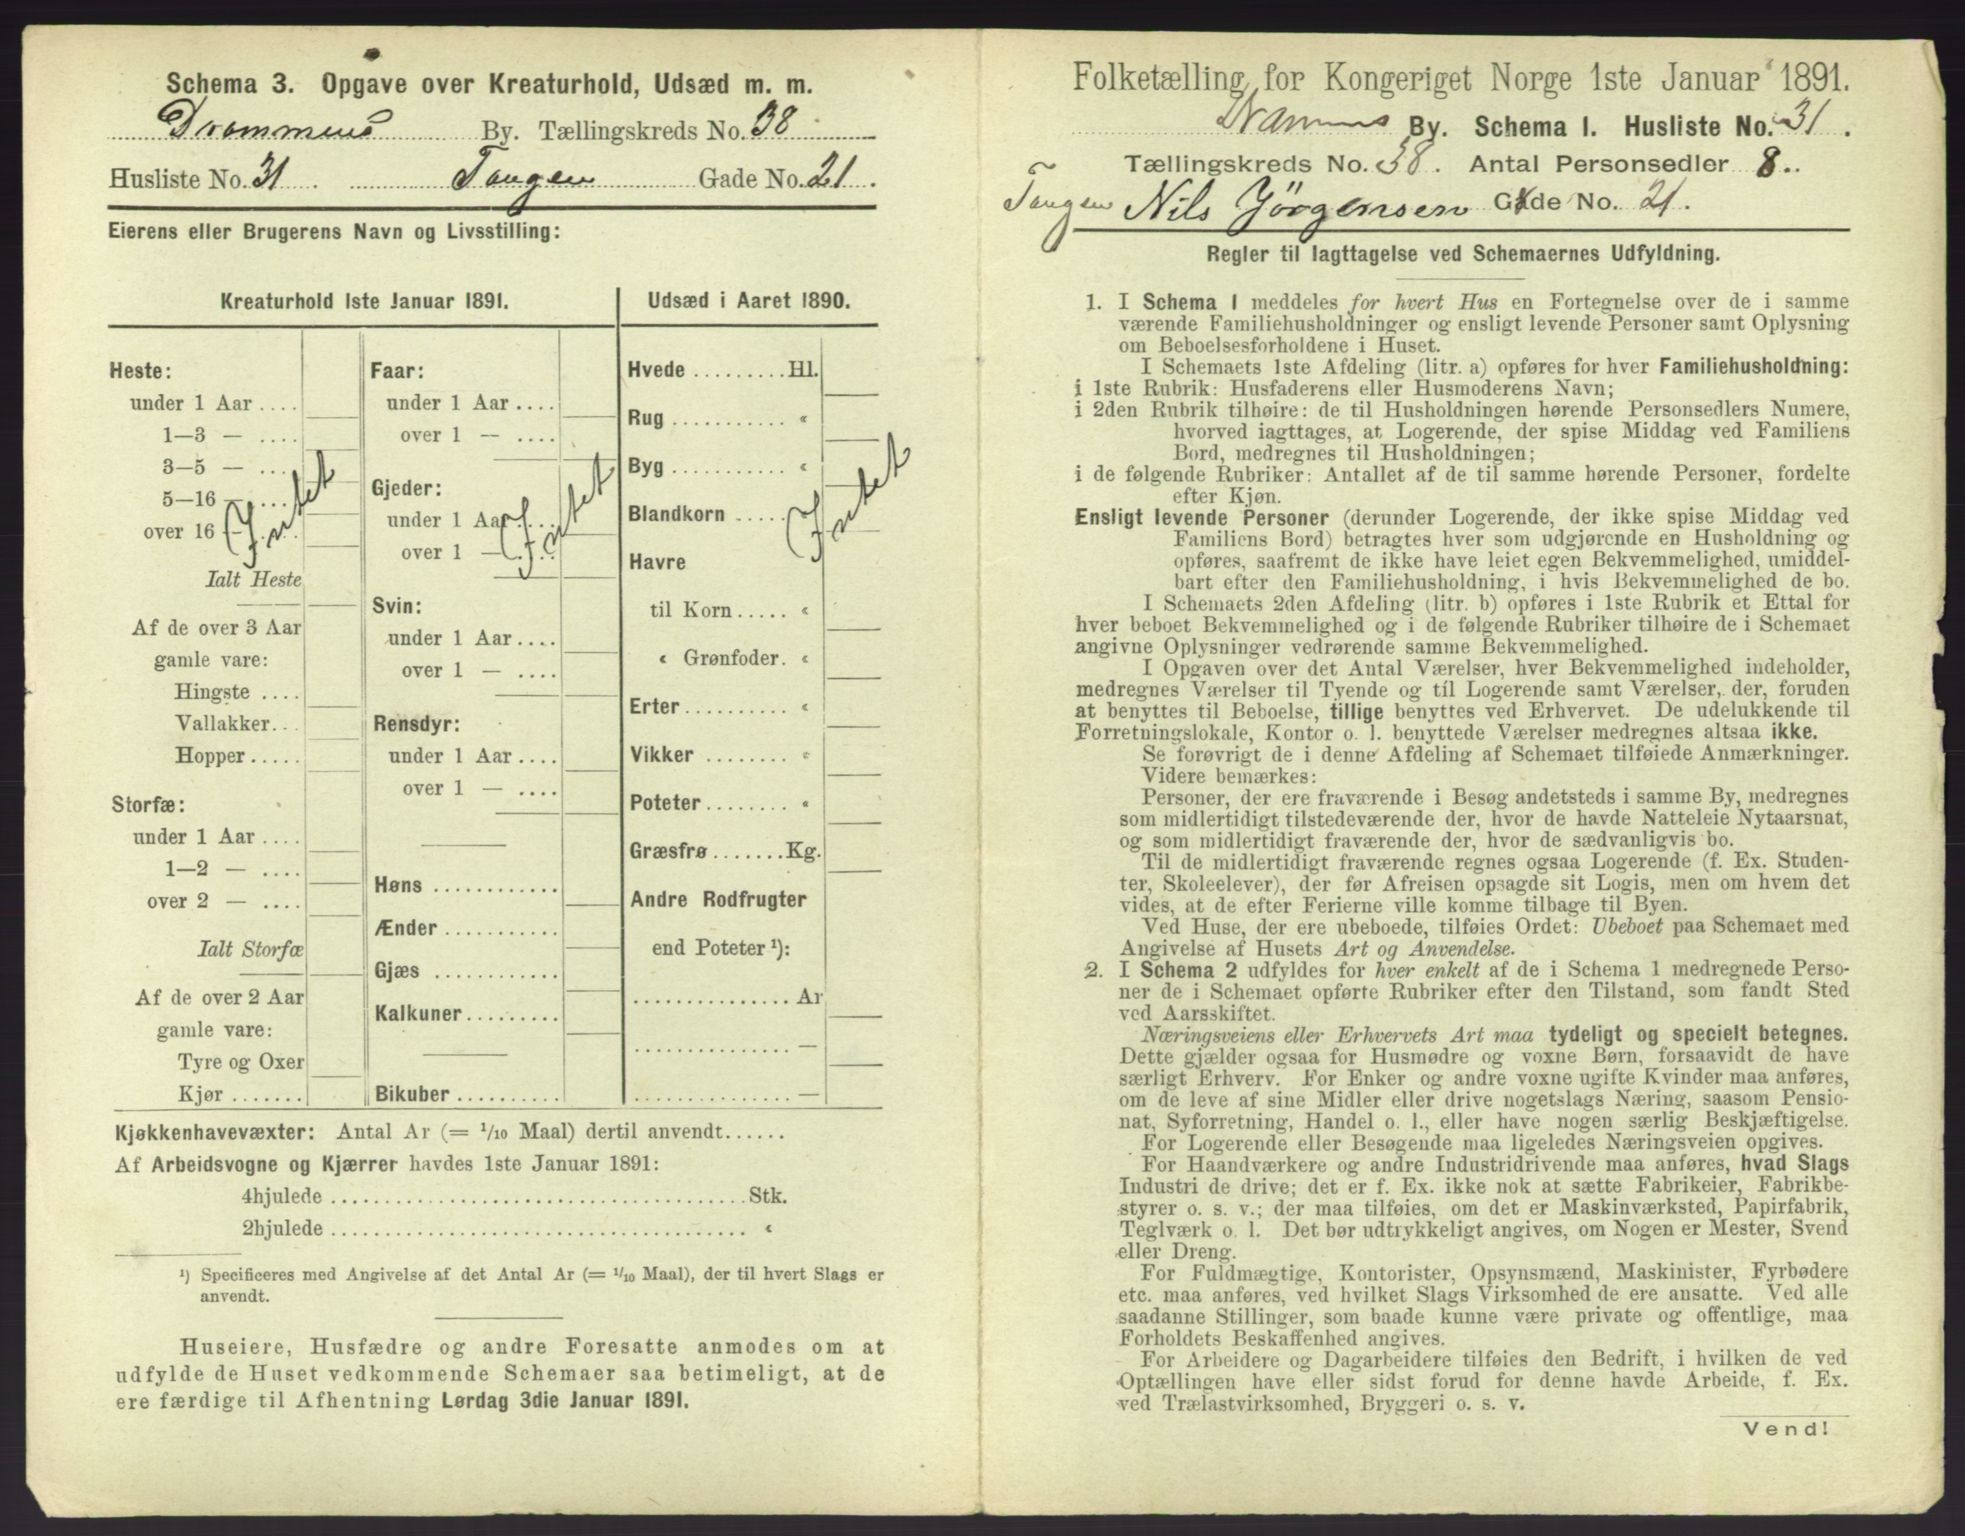 Schema 3. Opgave over Kreaturhold, Udsæd m. m.
Drammens By. Tællingskreds No. 38
Husliste No. 31. Tangen Gade No. 21.
Eierens eller Brugerens Navn og Livsstilling:
Kreaturhold 1ste Januar 1891.
Heste:
under 1 Aar ....
1—3 — ....
3—5 — ....
5—16 — ....
over 16 — ....
Intet
Ialt Heste
Af de over 3 Aar
gamle vare:
Hingste ....
Vallakker...
Hopper.....
Storfæ:
under 1 Aar ....
1—2 — ....
over 2 — ....
Ialt Storfæ
Af de over 2 Aar
gamle vare:
Tyre og Oxer
Kjør .......
Faar:
under 1 Aar ....
over 1 — ....
Gjeder:
under 1 Aar ....
over 1 — ....
Intet
Svin:
under 1 Aar ....
over 1 — ....
Rensdyr:
under 1 Aar ....
over 1 — ....
Høns ............
Ænder ...........
Gjæs ............
Kalkuner.........
Bikuber ..........
Udsæd i Aaret 1890.
Hvede .........Hl.
Rug ........... «
Byg ........... «
Blandkorn .....
Intet
Havre
til Korn ..... «
« Grønfoder. «
Erter.......... «
Vikker ........ «
Poteter........ «
Græsfrø.......Kg.
Andre Rodfrugter
end Poteter ¹):
............... Ar
............... —
............... —
Kjøkkenhavevæxter: Antal Ar (= 1/10 Maal) dertil anvendt......
Af Arbeidsvogne og Kjærrer havdes 1ste Januar 1891:
4hjulede ........................................ Stk.
2hjulede ........................................ «
¹) Specificeres med Angivelse af det Antal Ar (= 1/10 Maal), der til hvert Slags er
anvendt.
Huseiere, Husfædre og andre Foresatte anmodes om at
udfylde de Huset vedkommende Schemaer saa betimeligt, at de
ere færdige til Afhentning Lørdag 3die Januar 1891.
Folketælling for Kongeriget Norge 1ste Januar 1891.
Drammens By. Schema I. Husliste No. 31.
Tællingskreds No. 38. Antal Personsedler 8..
Tangen Nils Jörgensen Gade No. 21.
Regler til Iagttagelse ved Schemaernes Udfyldning.
1. I Schema I meddeles for hvert Hus en Fortegnelse over de i samme
værende Familiehusholdninger og ensligt levende Personer samt Oplysning
om Beboelsesforholdene i Huset.
I Schemaets 1ste Afdeling (litr. a) opføres for hver Familiehusholdning:
i 1ste Rubrik: Husfaderens eller Husmoderens Navn;
i 2den Rubrik tilhøire: de til Husholdningen hørende Personsedlers Numere,
hvorved iagttages, at Logerende, der spise Middag ved Familiens
Bord, medregnes til Husholdningen;
i de følgende Rubriker: Antallet af de til samme hørende Personer, fordelte
efter Kjøn.
Ensligt levende Personer (derunder Logerende, der ikke spise Middag ved
Familiens Bord) betragtes hver som udgjørende en Husholdning og
opføres, saafremt de ikke have leiet egen Bekvemmelighed, umiddel-
bart efter den Familiehusholdning, i hvis Bekvemmelighed de bo.
I Schemaets 2den Afdeling (litr. b) opføres i 1ste Rubrik et Ettal for
hver beboet Bekvemmelighed og i de følgende Rubriker tilhøire de i Schemaet
angivne Oplysninger vedrørende samme Bekvemmelighed.
I Opgaven over det Antal Værelser, hver Bekvemmelighed indeholder,
medregnes Værelser til Tyende og til Logerende samt Værelser, der, foruden
at benyttes til Beboelse, tillige benyttes ved Erhvervet. De udelukkende til
Forretningslokale, Kontor o. l. benyttede Værelser medregnes altsaa ikke.
Se forøvrigt de i denne Afdeling af Schemaet tilføiede Anmærkninger.
Videre bemærkes:
Personer, der ere fraværende i Besøg andetsteds i samme By, medregnes
som midlertidigt tilstedeværende der, hvor de havde Natteleie Nytaarsnat,
og som midlertidigt fraværende der, hvor de sædvanligvis bo.
Til de midlertidigt fraværende regnes ogsaa Logerende (f. Ex. Studen-
ter, Skoleelever), der før Afreisen opsagde sit Logis, men om hvem det
vides, at de efter Ferierne ville komme tilbage til Byen.
Ved Huse, der ere ubeboede, tilføies Ordet: Ubeboet paa Schemaet med
Angivelse af Husets Art og Anvendelse.
2. I Schema 2 udfyldes for hver enkelt af de i Schema 1 medregnede Perso-
ner de i Schemaet opførte Rubriker efter den Tilstand, som fandt Sted
ved Aarsskiftet.
Næringsveiens eller Erhvervets Art maa tydeligt og specielt betegnes.
Dette gjælder ogsaa for Husmødre og voxne Børn, forsaavidt de have
særligt Erhverv. For Enker og andre voxne ugifte Kvinder maa anføres,
om de leve af sine Midler eller drive nogetslags Næring, saasom Pensio-
nat, Syforretning, Handel o. l., eller have nogen særlig Beskjæftigelse.
For Logerende eller Besøgende maa ligeledes Næringsveien opgives.
For Haandværkere og andre Industridrivende maa anføres, hvad Slags
Industri de drive; det er f. Ex. ikke nok at sætte Fabrikeier, Fabrikbe-
styrer o. s. v.; der maa tilføies, om det er Maskinværksted, Papirfabrik,
Teglværk o. l. Det bør udtrykkeligt angives, om Nogen er Mester, Svend
eller Dreng.
For Fuldmægtige, Kontorister, Opsynsmænd, Maskinister, Fyrbødere
etc. maa anføres, ved hvilket Slags Virksomhed de ere ansatte. Ved alle
saadanne Stillinger, som baade kunne være private og offentlige, maa
Forholdets Beskaffenhed angives.
For Arbeidere og Dagarbeidere tilføies den Bedrift, i hvilken de ved
Optællingen have eller sidst forud for denne havde Arbeide, f. Ex.
ved Trælastvirksomhed, Bryggeri o. s. v.
Vend!